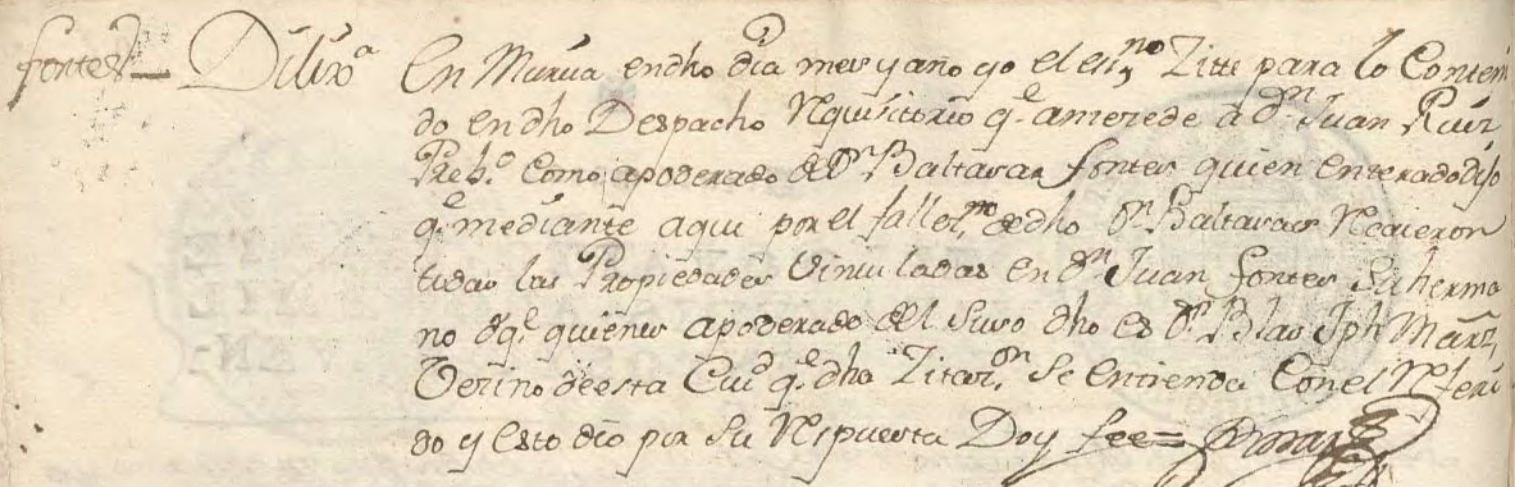 fontes — Dilix.ª En Murcia en dho dia mes y año yo el ess.no Zitte para lo Conteni
do en dho Despacho Requisitorio q.e amerede a d.n Juan Ruiz
Preb.o Como apoderado de D.n Baltasar fontes quien enterado dijo
q.e mediante aqui por el fallez.mo de dho D.n Baltasar Recaieron
todas las Propiedades Vinculadas en d.n Juan fontes su herma
no q.e quien es apoderado del suso dho es D.n Blas Jph Marz,
Vezino de esta Ciu.d q.e dha Zitaz.on se entienda Con el Referi
do y esto dio por su Respuesta Doy fee =